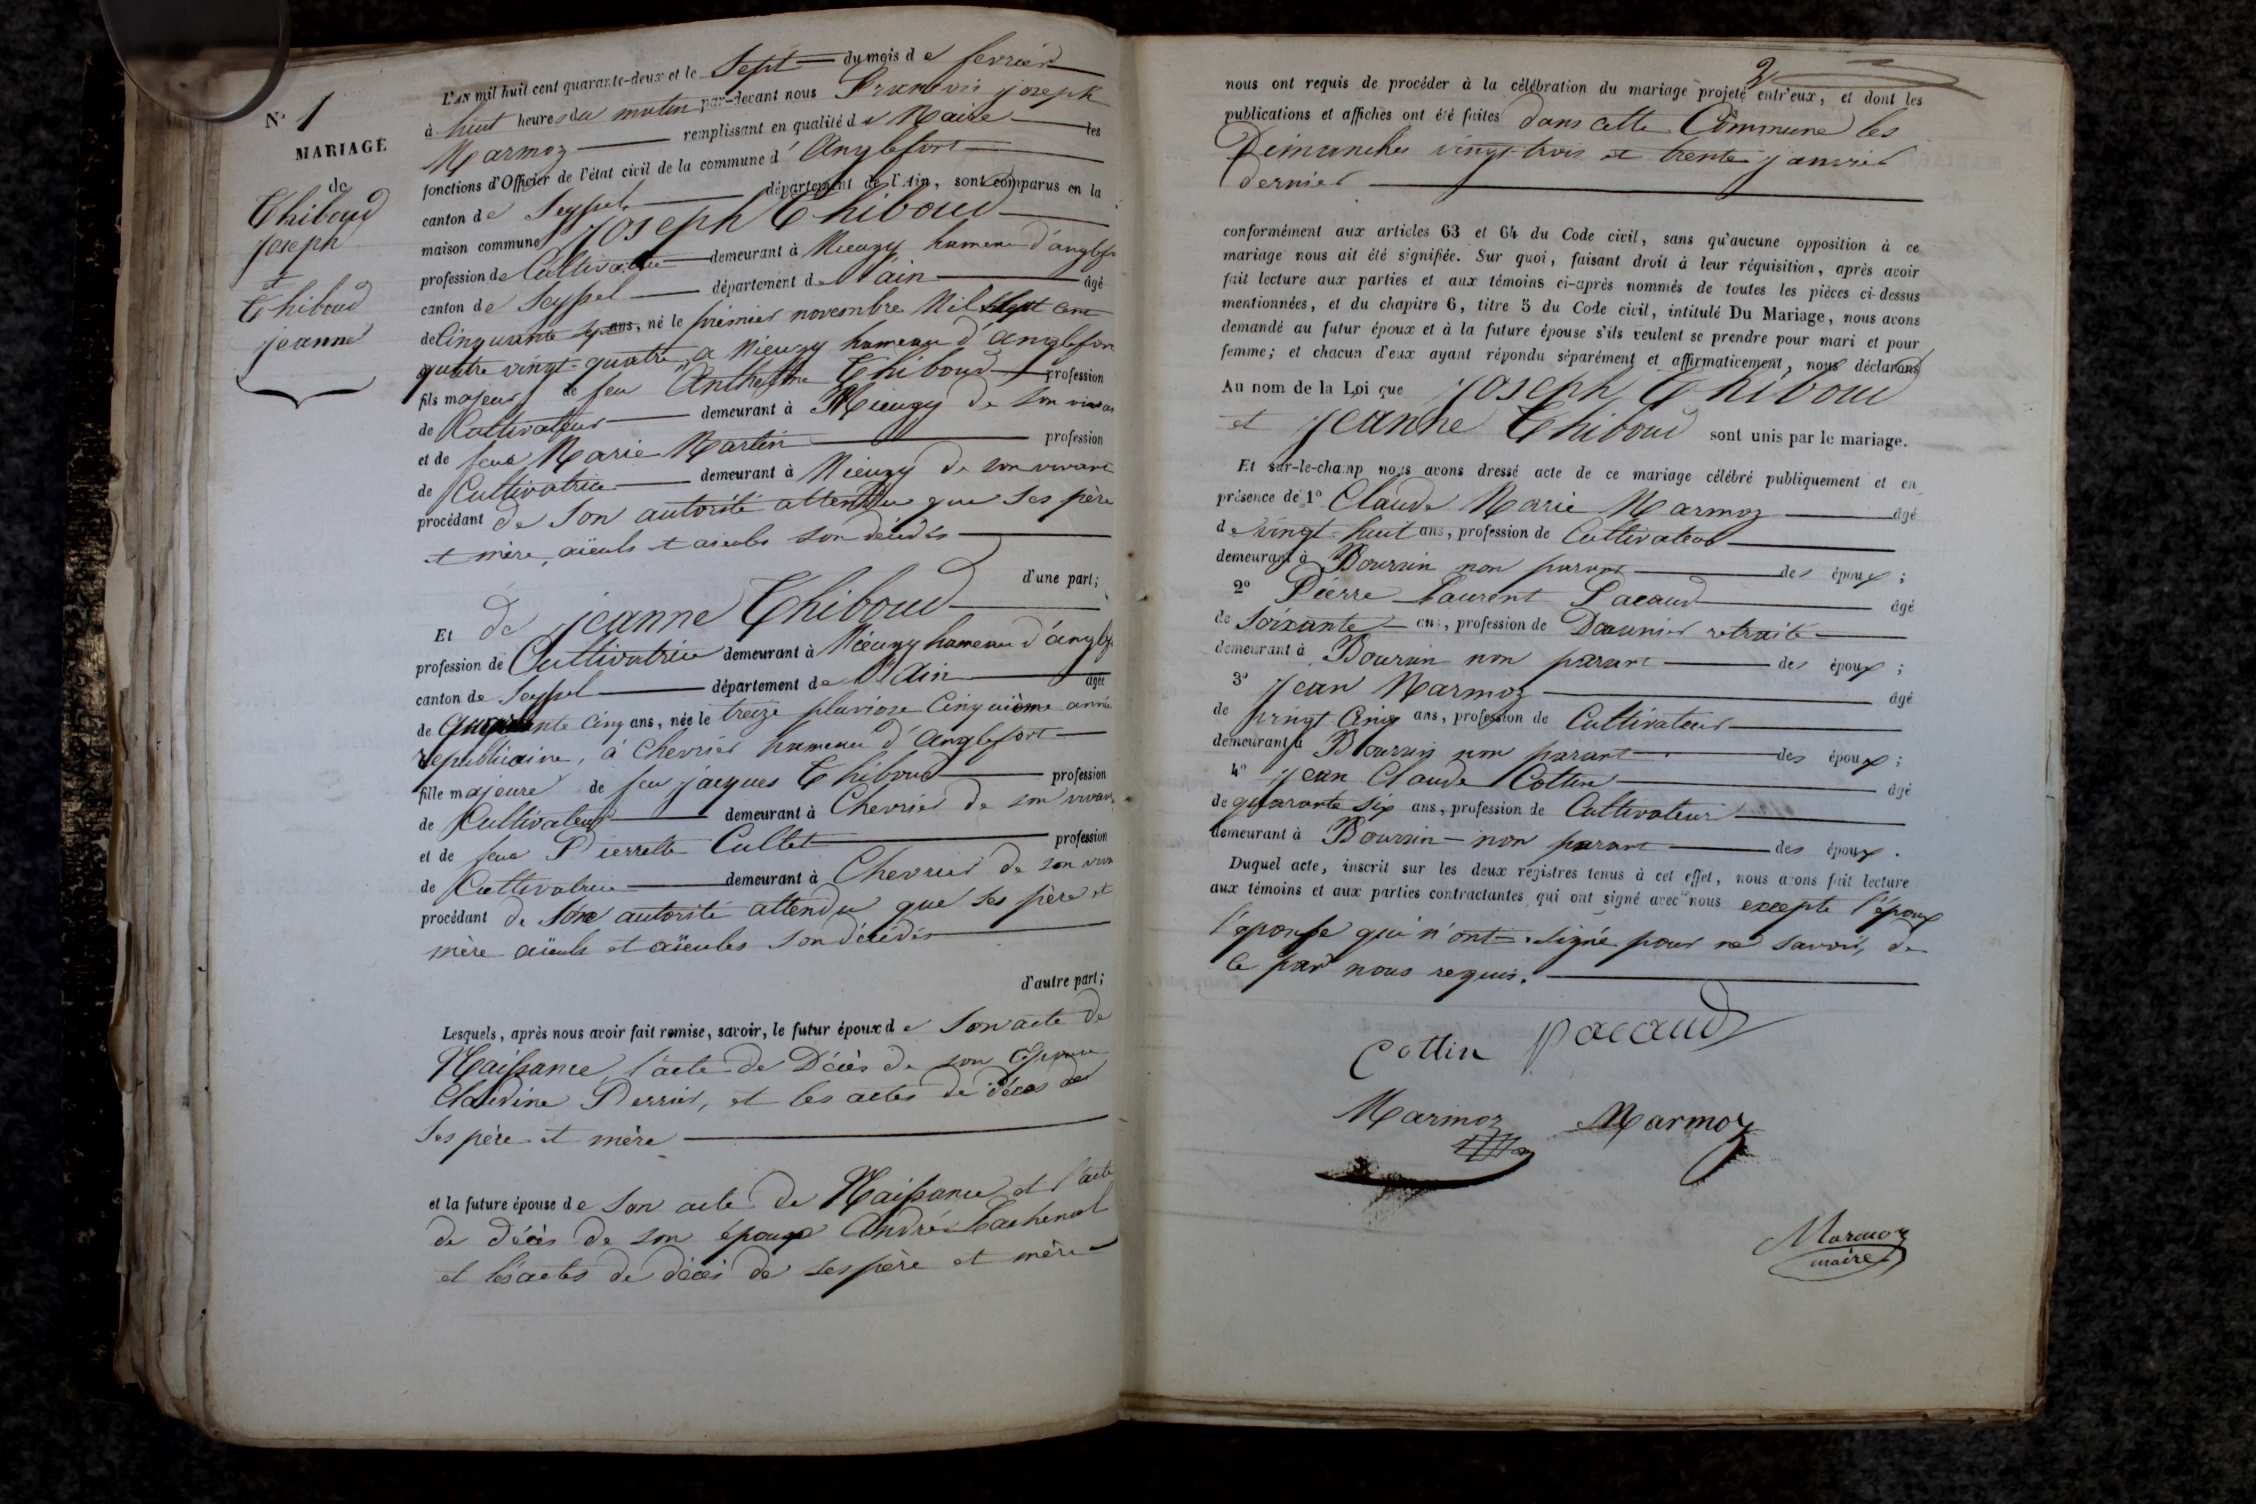 N° 1
MARIAGE
de
Thiboud
joseph
et
Thiboud
jeanne
L'AN mil huit cent quarante-deux et le Sept du mois de fevrier
à huit heures du matin par-devant nous Francois joseph
Marmoz remplissant en qualité de Maire les
fonctions d'Officier de l'état civil de la commune d'Anglefort
canton de Seyssel département de l'Ain, sont comparus en la
maison commune joseph Thiboud
profession de Cultivateur demeurant à Mieugy hameau d'anglefo
canton de Seyssel département de l'ain âgé
de Cinquante sept ans, né le premier novembre Mil sept cent
quatre vingt-quatre, a Mieugy hameau d'anglefort
fils majeur de feu Anthelme Thiboud profession
de Cultivateur demeurant à Mieugy de son vivan
et de feue Marie Martin profession
de Cultivatrice demeurant à Mieugy de son vivant
procédant de son autorité attendu que ses père
et mère, aïeuls et aïeules son décédés
d'une part;
Et de jeanne Thiboud
profession de Cultivatrice demeurant à Mieugy hameau d'anglef
canton de Seyssel département de l'Ain âgée
de quarante Cinq ans, née le treize pluviose Cinquième année
republicaine, à Chevrier hameau d'anglefort
fille majeure de feu jacques Thiboud profession
de Cultivateur demeurant à Chevrier de son vivant
et de feue Pierrette Cullet profession
de Cultivatrice demeurant à Chevrier de son viva
procédant de son autorité attendu que ses père et
mère aïeuls et aïeules son décédés
d'autre part;
Lesquels, après nous avoir fait remise, savoir, le futur époux de son acte de
Naissance, l'acte de Décès de son Epouse
Claudine Perrier, et les actes de décès de
ses père et mère
et la future épouse de son acte de Naissance et l'acte
de décès de son époux André Lachenal
et les actes de décès de ses père et mère
2
nous ont requis de procéder à la célébration du mariage projeté entr'eux, et dont les
publications et affiches ont été faites dans cette Commune les
Dimanches vingt-trois et trente janvier
dernier
conformément aux articles 63 et 64 du Code civil, sans qu'aucune opposition à ce
mariage nous ait été signifiée. Sur quoi, faisant droit à leur réquisition, après avoir
fait lecture aux parties et aux témoins ci-après nommés de toutes les pièces ci-dessus
mentionnées, et du chapitre 6, titre 5 du Code civil, intitulé Du Mariage, nous avons
demandé au futur époux et à la future épouse s'ils veulent se prendre pour mari et pour
femme; et chacun d'eux ayant répondu séparément et affirmativement, nous déclarons
Au nom de la Loi que joseph Thiboud
et jeanne Thiboud sont unis par le mariage.
Et sur-le-champ nous avons dressé acte de ce mariage célébré publiquement et en
présence de 1° Claude Marie Marmoz âgé
de vingt-huit ans, profession de Cultivateur
demeurant à Boursin non parant des époux;
2° Pierre Laurent Pacaud âgé
de Soixante ans, profession de Douanier retraité
demeurant à Boursin non parant des époux;
3° jean Marmoz âgé
de vingt Cinq ans, profession de Cultivateur
demeurant à Boursin non parant des époux;
4° jean Claude Cottin âgé
de quarante six ans, profession de Cultivateur
demeurant à Boursin non parant des époux.
Duquel acte, inscrit sur les deux registres tenus à cet effet, nous avons fait lecture
aux témoins et aux parties contractantes qui ont signé avec nous excepte l'époux
l'epouse qui n'ont signé pour ne savoir, de
ce par nous requis.
Cottin Pacaud
Marmoz Marmoz
Marmoz
maire